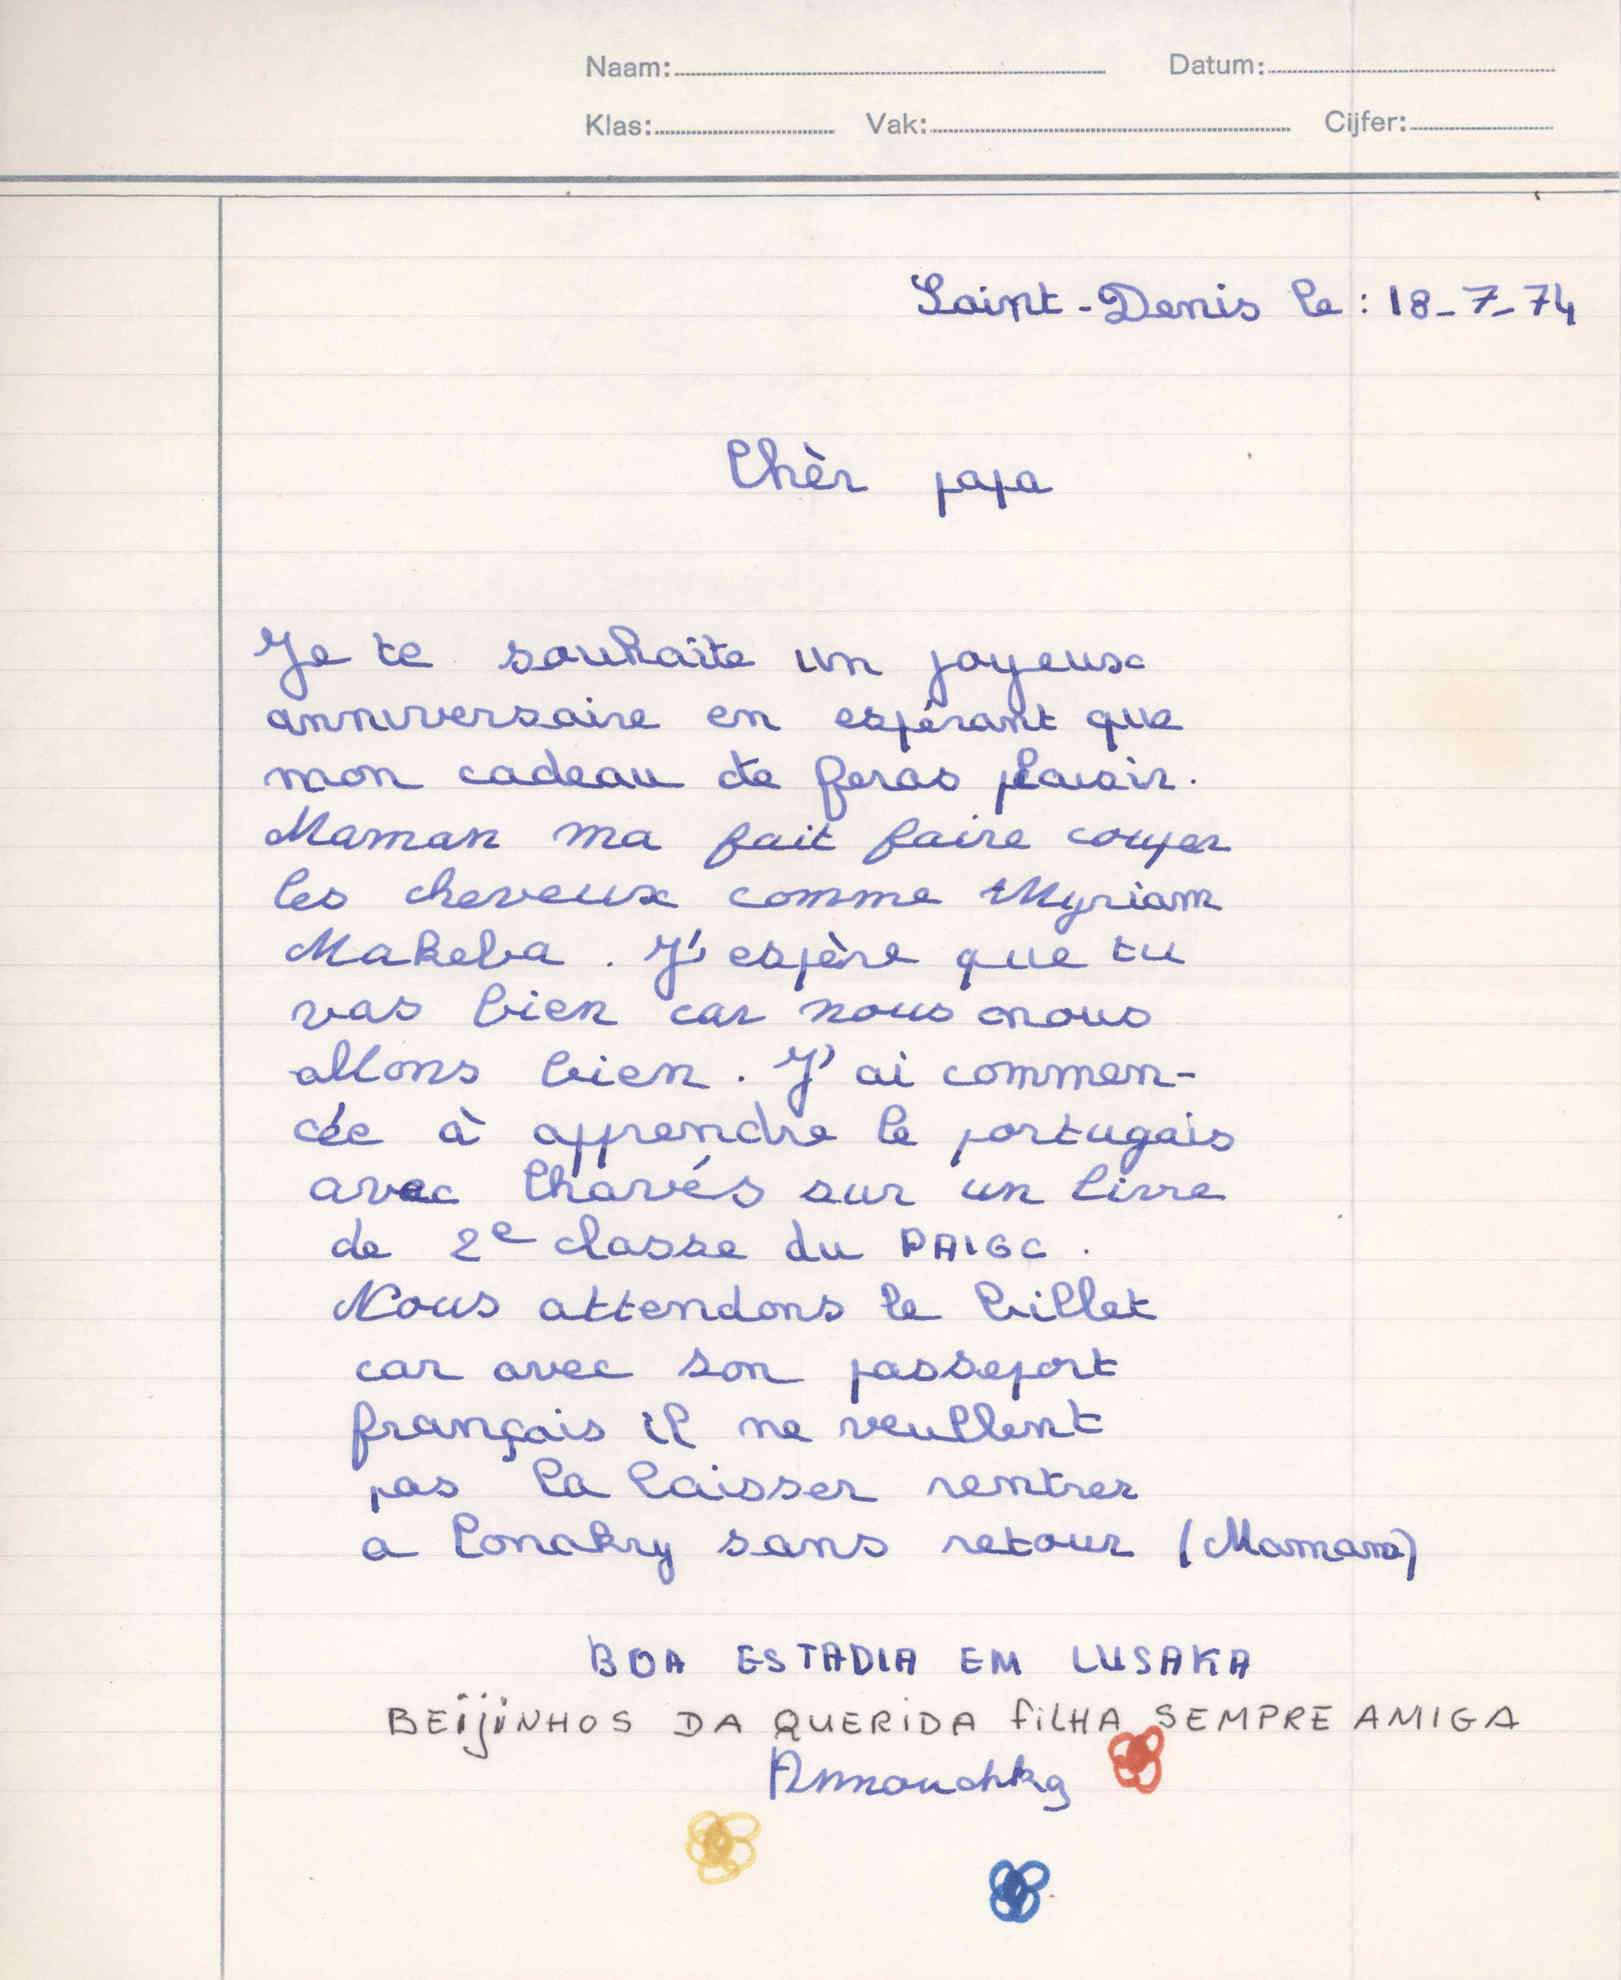 Naam: Datum:
Klas: Vak: Cijfer:
Saint-Denis le : 18-7-74
Chèr papa
Je te souhaite un joyeux
anniversaire en espérant que
mon cadeau te feras plaisir.
Maman ma fait faire couper
les cheveux comme Myriam
Makeba. J'espère que tu
vas bien car nous nous
allons bien. J'ai commen-
cée à apprendre le portugais
avec Chavés sur un livre
de 2e classe du PAIGC.
Nous attendons le billet
car avec son passeport
français il ne veullent
pas la laisser rentrer
a Conakry sans retour (Maman)
BOA ESTADIA EM LUSAKA
BEijiNHOS DA QUERIDA fiLHA SEMPRE AMIGA
Annouchka